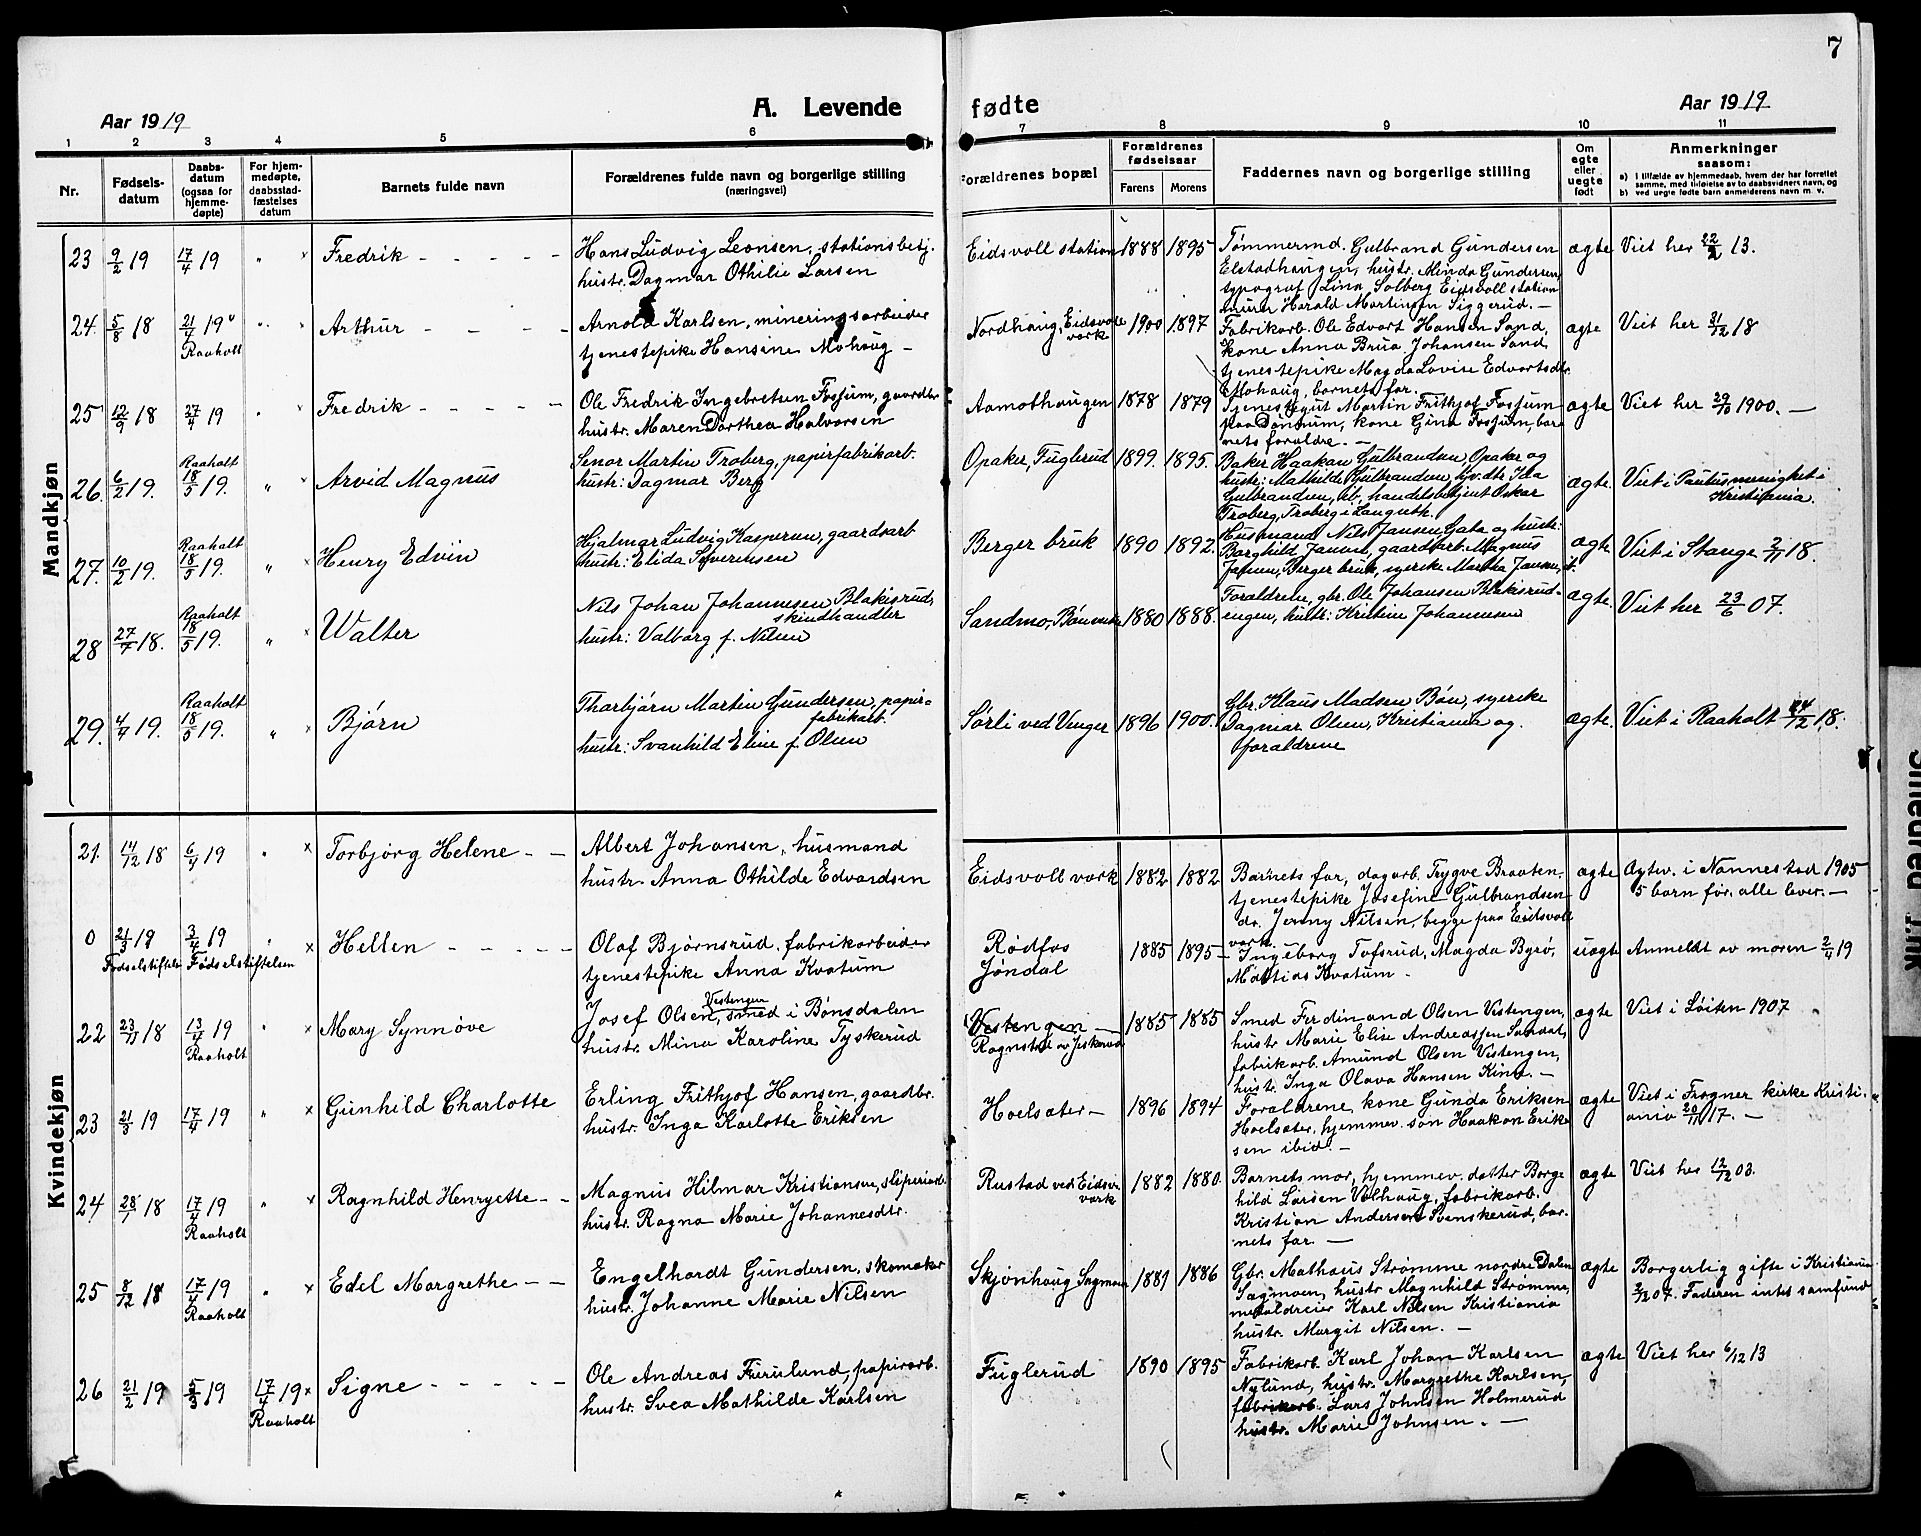 7
Aar 1919
A. Levende
fødte
Aar 1919
1 2 3 4 5 6 7 8 9 10 11
Nr.
Fødsels-
datum
Daabs-
datum
(ogsaa for
hjemme-
døpte)
For hjem-
medøpte,
daabsstad-
fæstelses
datum
Barnets fulde navn
Forældrenes fulde navn og borgerlige stilling
(næringsvei)
Forældrenes bopæl
Forældrenes
fødselsaar
Farens Morens
Faddernes navn og borgerlige stilling
Om
egte
eller
uegte
født
Anmerkninger
saasom:
a) I tilfælde av hjemmedaab, hvem der har forrettet
samme, med tilføielse av to daabsvidners navn, og
b) ved uegte fødte barn anmelderens navn m. v.
Mandkjøn
23 9/2 19 17/4 19 " × Fredrik - - - - -
Hans Ludvig Leonsen, stationsbetj.
hustr. Dagmar Othilie Larsen
Eidsvoll station 1888 1895
Tømmermd. Gulbrand Gundersen
Elstadhaugen, hustr. Minda Gundersen,
typograf Lina Solberg Eidsvoll station
murer Harald Martinsen Siggerud. -
ægte Viet her 22/2 13.
24. 5/8 18 21/4 19 " × Arthur - - - -
Raaholt
Arnold Karlsen, mineringsarbeider
tjenestepike Hansine Mohaug -
Nordhaug, Eidsvold
verk 1900 1897
Fabrikarb. Ole Edvart Hansen Sand,
kone Anna Brua Johansen Sand,
tjenestepike Magda Lovise Edvartsdtr.
Mohaug, barnets far.
ægte Viet her 31/12 18
25 12/9 18 27/4 19 " × Fredrik - - - - -
Ole Fredrik Ingebretsen Fossum, gaardbr.
hustr. Maren Dorthea Halvorsen
Aamothaugen 1878 1879
Tjenestegut Martin Frithjof Fossum
paa Dønnum, kone Gina Fossum, bar
nets forældre. -
ægte Viet her 29/10 1900. -
26. 6/2 19. Raaholt
18/5 19. " × Arvid Magnus
Senor Martin Troberg, papirfabrikarb.
hustr: Dagmar Berg
Opaker, Fuglerud 1899. 1895.
Baker Haakan Gulbrandsen, Opaker og
hustr: Mathilde Gulbrandsen, gv.dtr Ida
Gulbrandsen, ib, handelsbetjent Oskar
Troberg, Troberg i Langseth.
ægte. Viet i Paulusmenighet i
Kristiania.
27. 10/2 19. Raaholt
18/5 19. " × Henry Edvin
Hjalmar Ludvig Kaspersen, gaardsarb
hustr: Elida Severinsen
Berger bruk 1890 1892.
Husmand Nils Jansen Gata og hustr:
Borghild Jansen, gaardsarb. Magnus
Jansen, Berger bruk, syerske Martha Jansen, ib.
ægte Viet i Stange 2/11 18.
28 27/7 18. Raaholt
18/5 19. " × Walter
Nils Johan Johannesen Blakisrud,
skindhandler
hustr: Valborg f. Nilsen
Sandmo, Bønverk 1880 1888.
Forældrene, gbr. Ole Johansen Blaksrud-
engen, hustr: Kristine Johannesen
ægte. Viet her 23/6 07.
29. 4/4 19. Raaholt
18/5 19. " × Bjørn
Thorbjørn Martin Gundersen, papir-
fabrikarb.
hustr: Svanhild Eline f. Olsen
Sørli ved Venger 1896 1900.
Gbr. Klaus Madsen Bøn, syerske
Dagmar Olsen, Kristiania og
forældrene
ægte. Viet i Raaholt 24/12 18.
Kvindekjøn
21. 14/12 18 6/4 19 " × Torbjørg Helene - -
Albert Johansen, husmand
hustr. Anna Othilde Edvardsen
Eidsvoll verk 1882 1882
Barnets far, dagarb. Trygve Braaten,
tjenestepike Josefine Gulbrandsen
do. Jenny Nilsen, begge paa Eidsvoll
verk.
ægte Agtev. i Nannestad 1905
5 barn før, alle lever. -
0 21/3 19 3/4 19 " × Hellen - - - - -
Fødselstiftels Fødselstiftelsen
Olaf Bjørnsrud, fabrikarbeider
tjenestepike Anna Kvatum
Rødfos
Jøndal 1885 1895
Ingeborg Tofsrud, Magda Byrø,
Mattias Kvatum -
uægte Anmeldt av moren 2/4 19
22 23/11 18 13/4 19 " × Mary Synnøve
Raaholt
Josef Olsen, smed i Bønsdalen
Vestengen
hustr. Mina Karoline Tyskerud
Vestengen -
1885 1885
Smed Ferdinand Olsen Vestengen,
hustr Marie Elise Andreassen Sundat,
fabrikarb. Amund Olsen Vestengen,
hustr. Inga Olava Hansen Kind. -
ægte Viet i Løiten 1907
23 21/3 19 17/4 19 " × Gunhild Charlotte
Erling Frithjof Hansen, gaardbr.
hustr. Inga Karlotte Eriksen
Hoelsæter - 1896 1894
Forældrene, kone Gunda Eriksen
Hoelsæter, hjemmev. søn Haakon Erik-
sen ibid. -
ægte Viet i Frogner kirke Kristi-
ania 20/11 17. -
24 28/7 18 17/4 19 " × Ragnhild Henryette - -
Raaholt
Magnus Hilmar Kristiansen, sliperiarb.
hustr. Ragna Marie Johannesdtr.
Rustad ved Eidsv.
verk 1882 1880.
Barnets mor, hjemmev. datter Borg-
hild Larsen Volhaug, fabrikarb.
Kristian Andersen Svenskerud, bar-
nets far. -
ægte Viet her 12/12 03.
25 8/12 18 17/4 19 " × Edel Margrethe - -
Raaholt
Engelhardt Gundersen, skomaker
hustr. Johanne Marie Nilsen
Skjønhaug Sagmoen 1881 1886
Gbr. Mathæus Strømme nordre Dalen
Sagmoen, hustr Magnhild Strømme,
metaldreier Karl Nilsen Kristiania
hustr. Margit Nilsen. -
ægte Borgerlig gifte i Kristiania
2/12 07. Faderen intet samfund
26 21/2 19 5/3 19 17/4 19 × Signe - - - - -
Raaholt
Ole Andreas Furulund, papirarb.
hustr. Svea Mathilde Karlsen
Fuglerud 1890 1895
Fabrikarb. Karl Johan Karlsen
Nylund, hustr. Margrethe Karlsen,
fabrikarb. Lars Johnsen Holmerud
hustr. Marie Johnsen. -
ægte Viet her 6/12 13